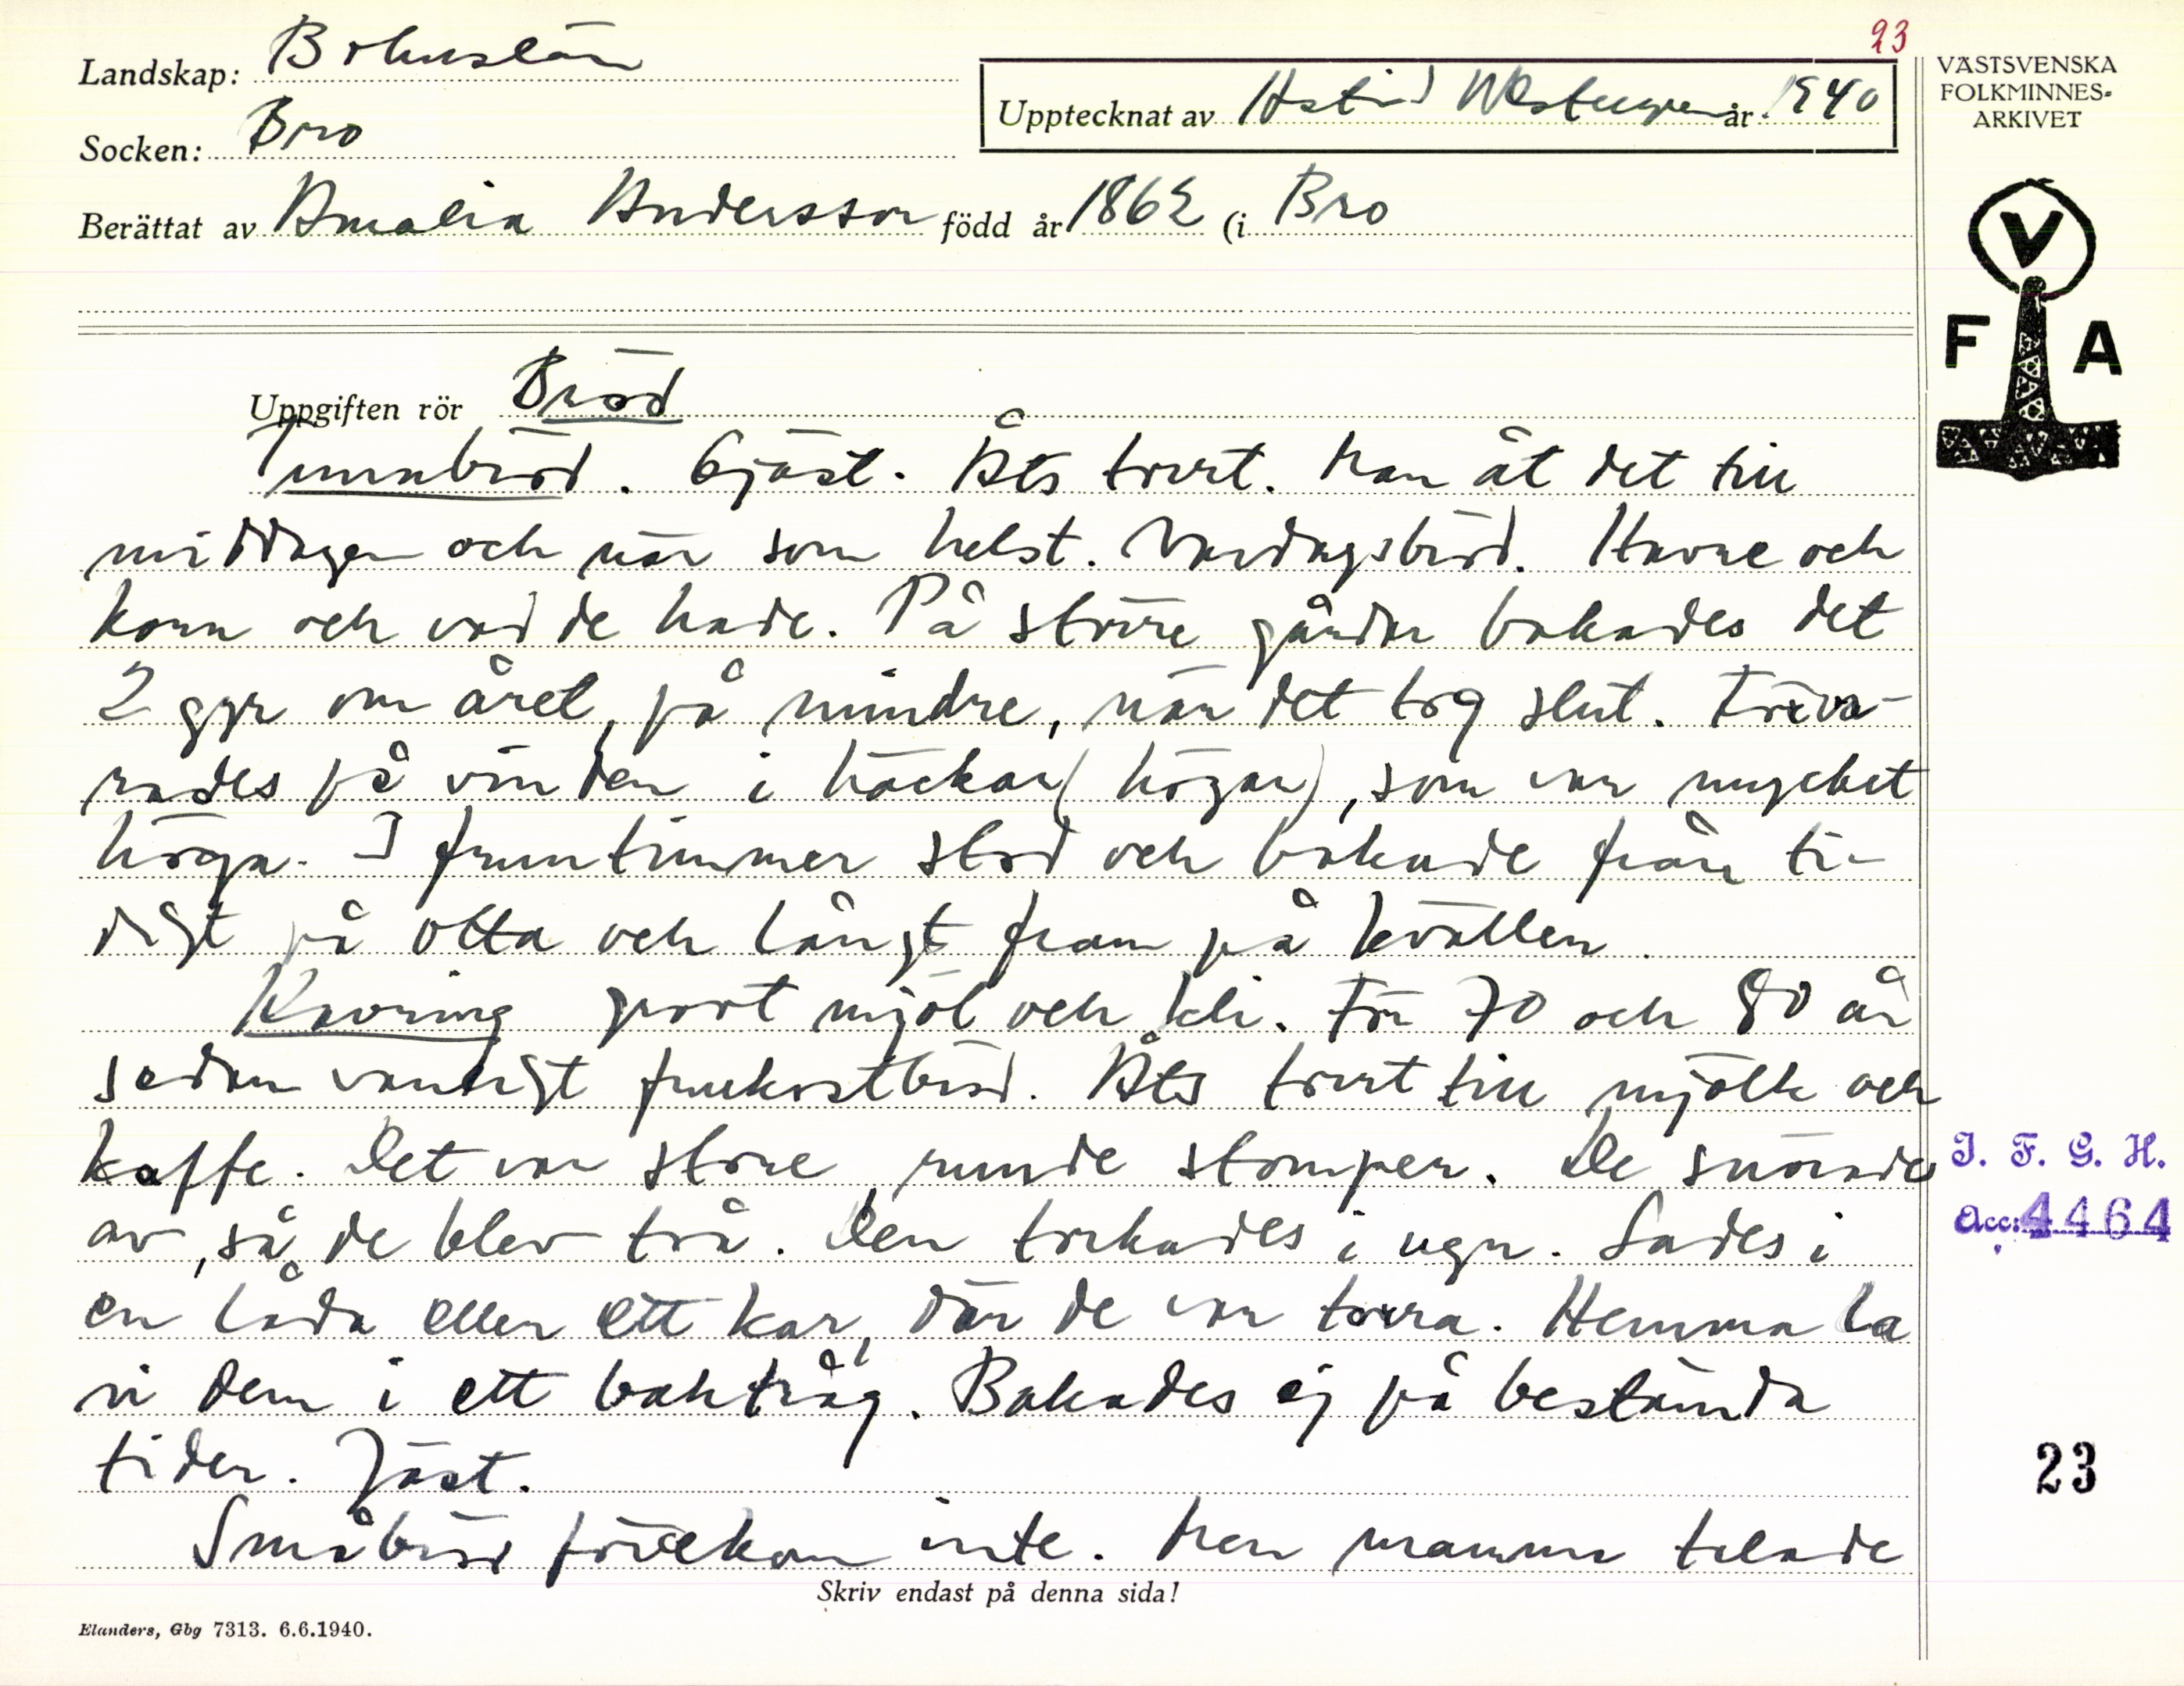 23
Landskap: Bohuslän
Upptecknat av Astrid Westergren år 1940
Socken: Bro
Berättat av Amalia Andersson född år 1862 (i Bro
VÄSTSVENSKA
FOLKMINNES-
ARKIVET
V
F A
Uppgiften rör Bröd
Tunnbröd. Ojäst. Åts torrt. Man åt det till
middagen och när som helst. Vardagsbröd. Havre och
korn och vad de hade. På större gårdar bakades det
2 ggr om året, på mindre, när det tog slut. Förva-
rades på vinden i häckar (högar), som var mycket
höga. 3 fruntimmer stod och bakade från ti-
digt på otta och långt fram på kvällen.
Kavring grovt mjöl och kli. För 70 och 80 år
sedan vanligt frukostbröd. Åts torrt till mjölk och
kaffe. Det var store, runde stomper. De snörades
av, så de blev två. Den torkades i ugn. Lades i
en låda eller ett kar, där de var torra. Hemma la
vi dem i ett baktråg. Bakades ej på bestämda
tider. Jäst.
Småbröd förekom inte. Men mamma talade
Skriv endast på denna sida!
Elanders, Gbg 7313. 6.6.1940.
I. F. G. H.
Acc: 4464
23